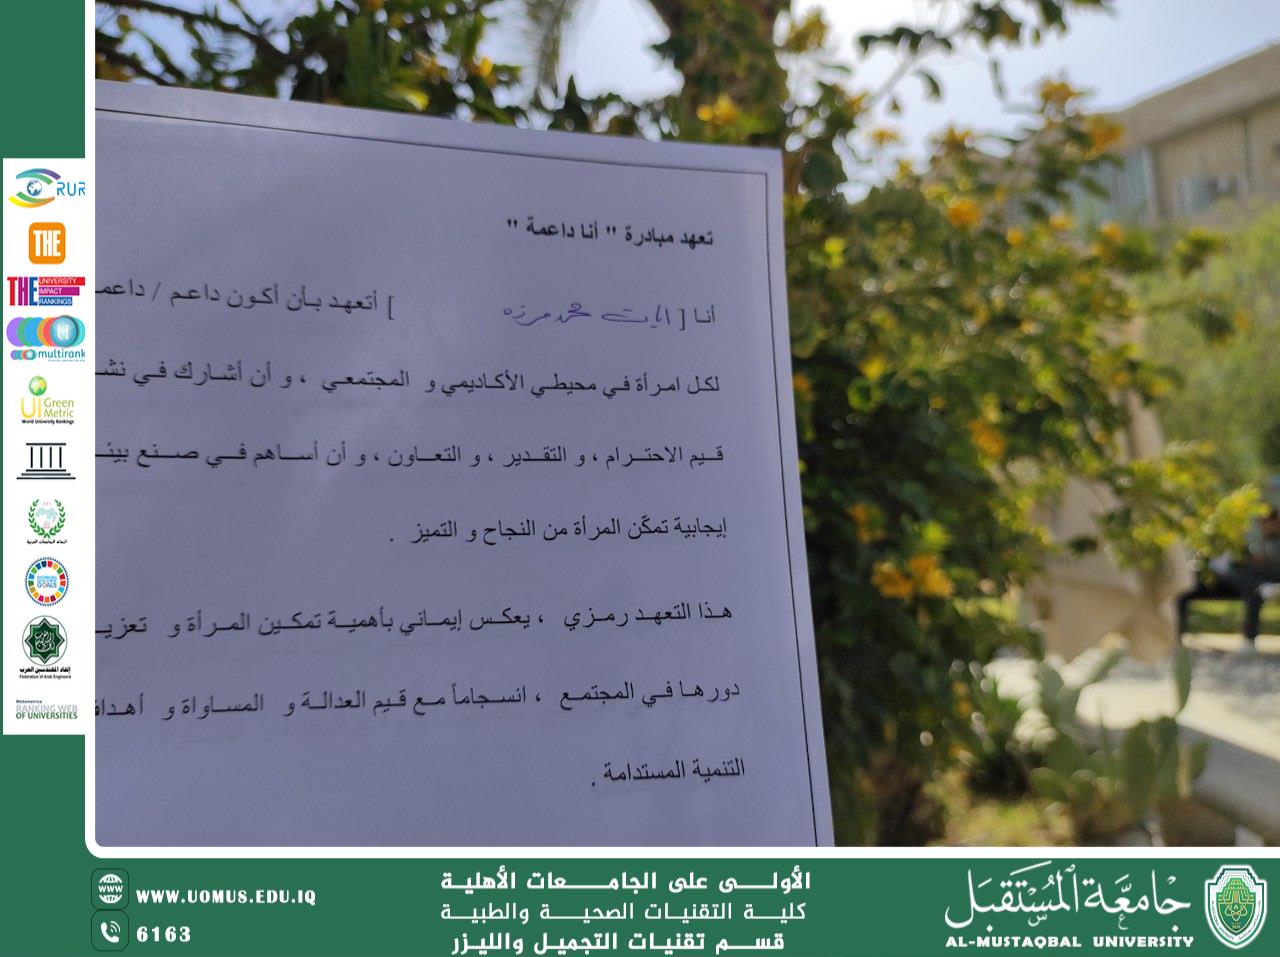 تعهد مبادرة " أنا داعمة "
أنا [ ايات محمد مرزه ] أتعهد بأن أكون داعم / داعمـ
لكل امرأة في محيطي الأكاديمي و المجتمعي ، و أن أشارك في نشـ
قيم الاحترام ، و التقدير ، و التعاون ، و أن أساهم في صنع بيئـ
إيجابية تمكّن المرأة من النجاح و التميز .
هذا التعهد رمزي ، يعكس إيماني بأهمية تمكين المرأة و تعزيـ
دورها في المجتمع ، انسجاماً مع قيم العدالة و المساواة و أهداف
التنمية المستدامة .
RUR
THE
THE UNIVERSITY IMPACT RANKINGS
U multirank
UI Green Metric
World University Rankings
اتحاد الجامعات العربية
SUSTAINABLE DEVELOPMENT GOALS
إتحاد المهندسين العرب
Federation of Arab Engineers
Webometrics
RANKING WEB
OF UNIVERSITIES
WWW
WWW.UOMUS.EDU.IQ
6163
الأولى على الجامعات الأهلية
كلية التقنيات الصحية والطبية
قسم تقنيات التجميل والليزر
جامعة المستقبل
AL-MUSTAQBAL UNIVERSITY